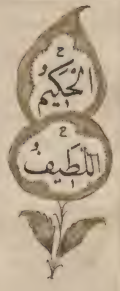 ٤
الحَكِيمُ
٤
اللَّطِيفُ